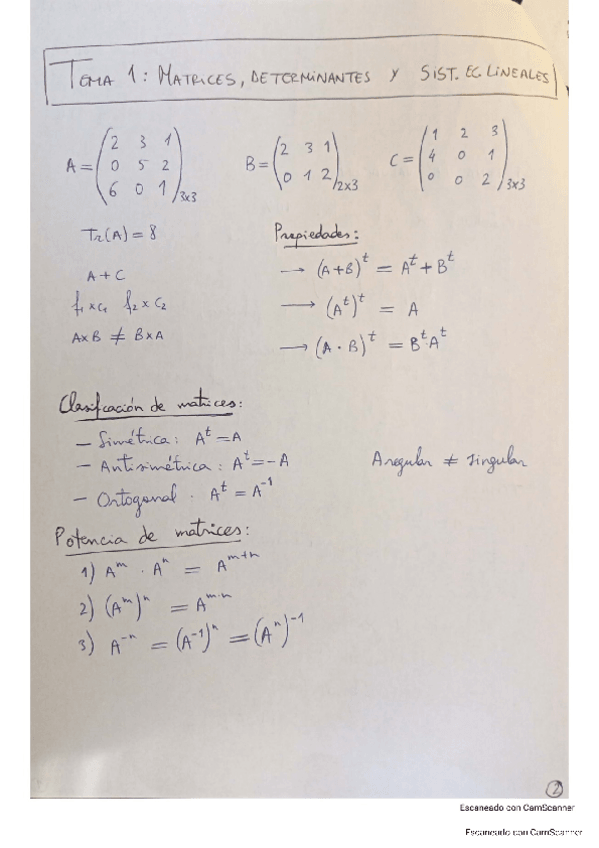 TEMA 1: MATRICES, DETERMINANTES Y SIST. EC. LINEALES
A = (2 3 1
0 5 2
6 0 1) 3x3
B = (2 3 1
0 1 2) 2x3
C = (1 2 3
4 0 1
0 0 2) 3x3
Tr(A) = 8
A + C
f₁ x c₁ f₂ x c₂
AxB ≠ BxA
Propiedades:
→ (A+B)ᵗ = Aᵗ + Bᵗ
→ (Aᵗ)ᵗ = A
→ (A · B)ᵗ = Bᵗ·Aᵗ
Clasificación de matrices:
- Simétrica: Aᵗ = A
- Antisimétrica: Aᵗ = -A
- Ortogonal. Aᵗ = A⁻¹
A regular ≠ singular
Potencia de matrices:
1) Aᵐ · Aⁿ = Aᵐ⁺ⁿ
2) (Aᵐ)ⁿ = Aᵐ·ⁿ
3) A⁻ⁿ = (A⁻¹)ⁿ = (Aⁿ)⁻¹
2
Escaneado con CamScanner
Escaneado con CamScanner